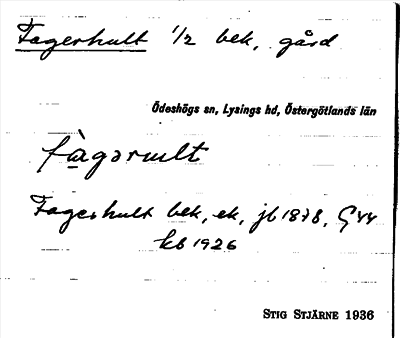 Fagerhult 1/2 bek, gård
Ödeshögs sn, Lysings hd, Östergötlands län
fàgərult
Fagerhult bek, ek, jb 1878, G 44
kb 1926
STIG STJÄRNE 1936